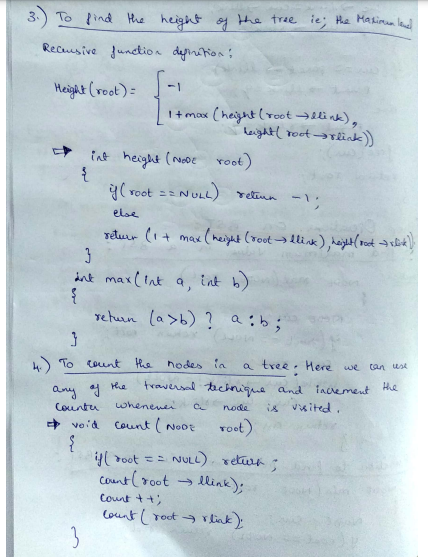 3.) To find the height of the tree ie; the Maximum level
Recursive function definition:
Height (root) = { -1
1+max (height (root → llink),
height (root → rlink))
⇒ int height (NODE root)
{
if (root == NULL) return -1;
else
return (1 + max (height (root → llink), height (root → rlink))
}
int max (int a, int b)
{
return (a>b) ? a : b ;
}
4.) To count the nodes in a tree: Here we can use
any of the traversal technique and increment the
Counter whenever a node is visited.
⇒ void count (NODE root)
{
if (root == NULL) return ;
count (root → llink);
count ++;
count (root → rlink);
}